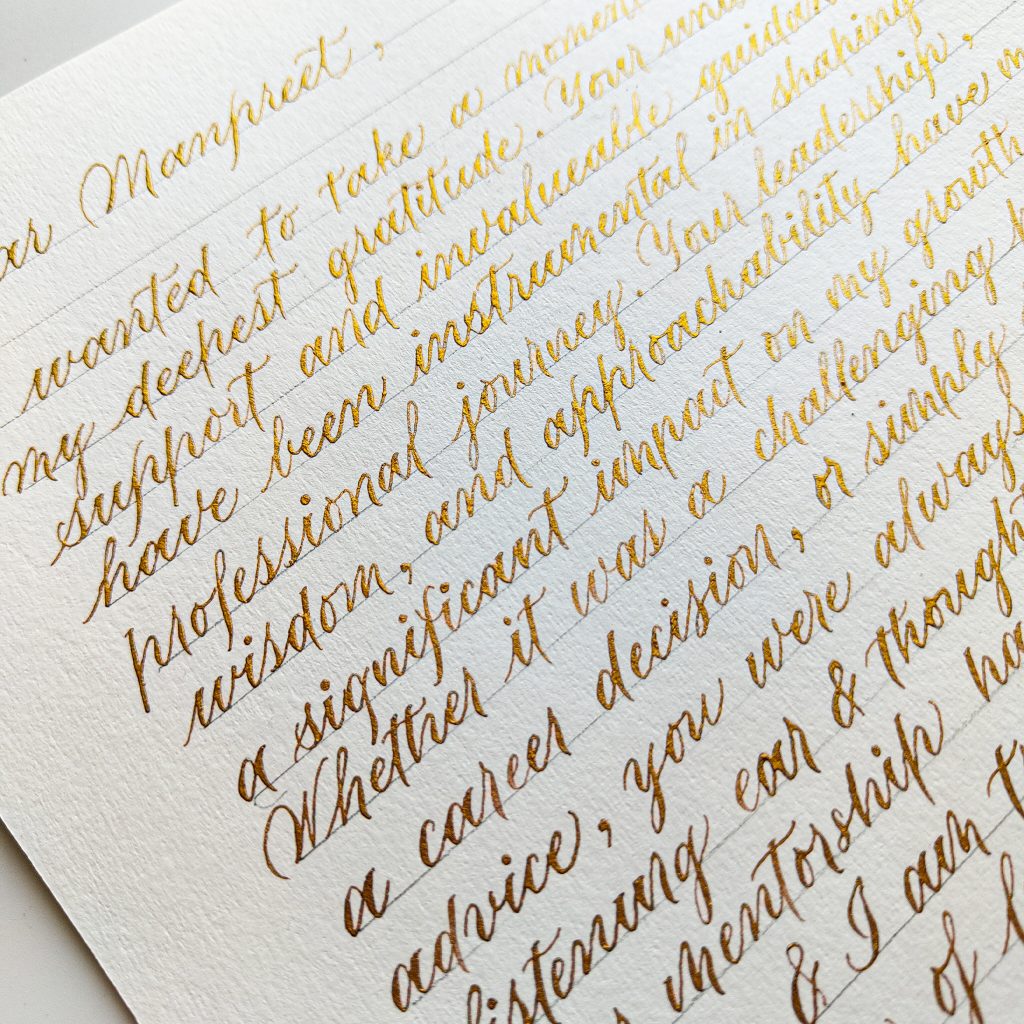 ar Manpreet,
wanted to take a moment
my deepest gratitude. Your
support and invalueable guidan
have been instrumental in shaping
professional journey. Your leadership,
wisdom, and approachability have
a significant impact on my growth
Whether it was a challenging
a career decision, or simply
advice, you were always
listening ear & though
mentorship ha
& I am
of